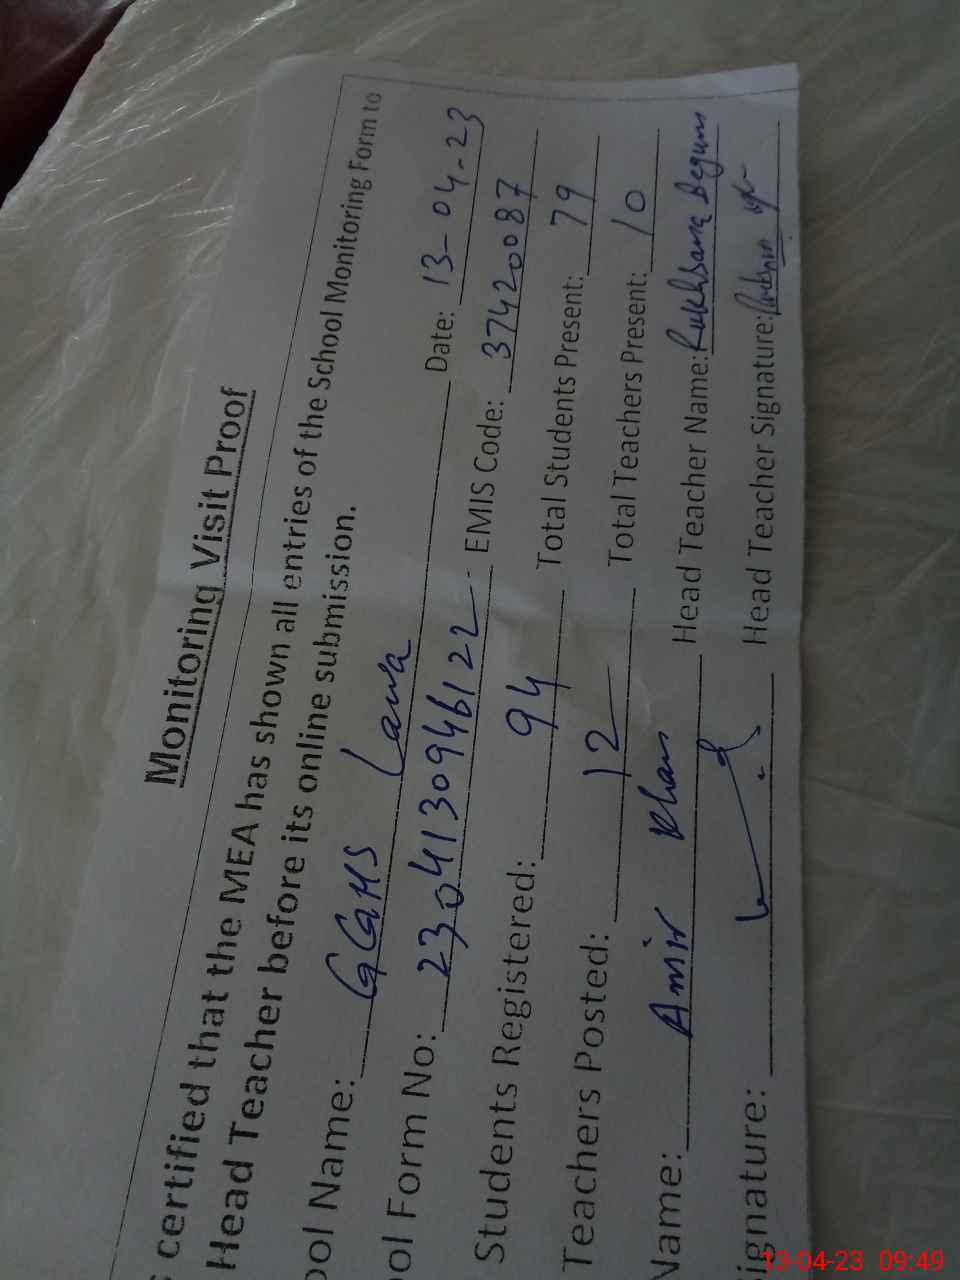 Monitoring Visit Proof
certified that the MEA has shown all entries of the School Monitoring Form to
Head Teacher before its online submission.
ool Name: GGHS Lawa Date: 13-04-23
ool Form No: 230413094612 2 EMIS Code: 37420087
Students Registered: 94 Total Students Present: 79
Teachers Posted: 12 Total Teachers Present: 10
Name: Amir Khan Head Teacher Name: Rukhsana Begum
ignature: Head Teacher Signature:
13-04-23 09:49